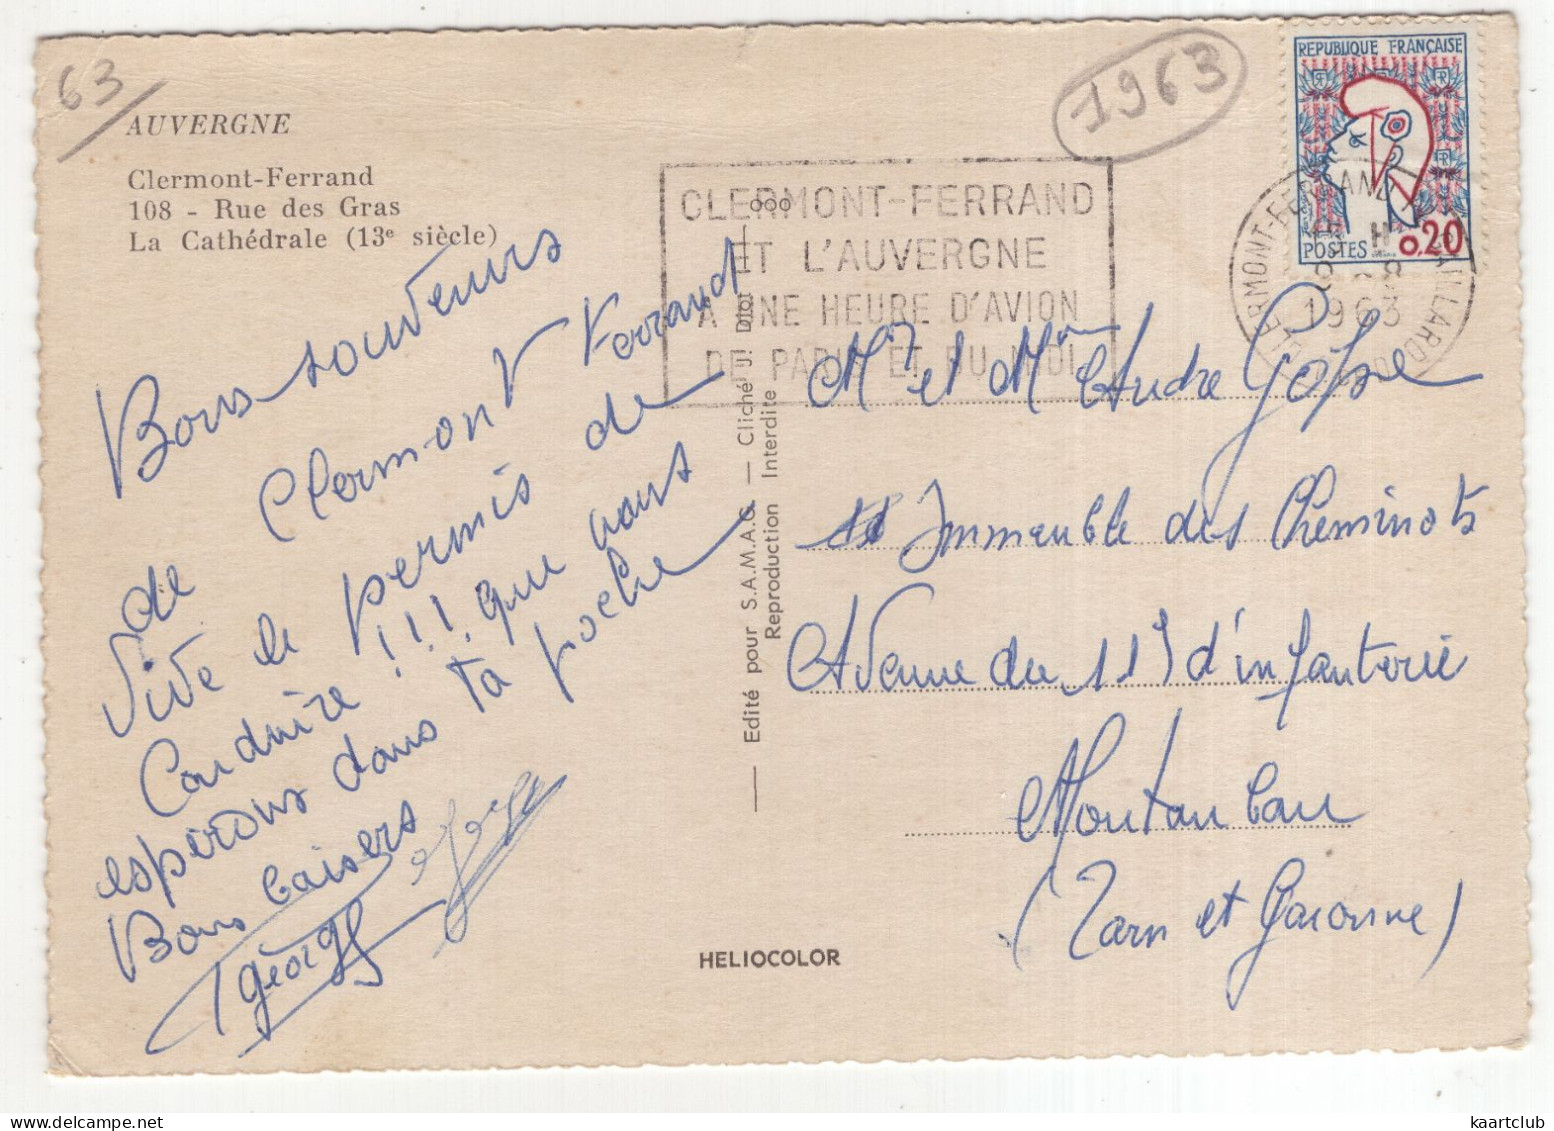 63
AUVERGNE
Clermont-Ferrand
108 - Rue des Gras
La Cathédrale (13e siècle)
Bons souvenirs
de Clermont Ferrand
Vive le permis de
Conduire !!! que nous
esperons dans ta poche
Bons baisers
ooo
Edité pour S.A.M.A.G. — Cliché J. Diot
Reproduction Interdite
HELIOCOLOR
1963
CLERMONT-FERRAND
ET L'AUVERGNE
A UNE HEURE D'AVION
DE PARIS ET DU MIDI
CLERMONT-FERRAND
1963
REPUBLIQUE FRANÇAISE
RF
POSTES
0,20
Mr et Mme Andre
Immeuble des Cheminots
Avenue du 11e d'infanterie
Montauban
(Tarn et Garonne)
kaartclub